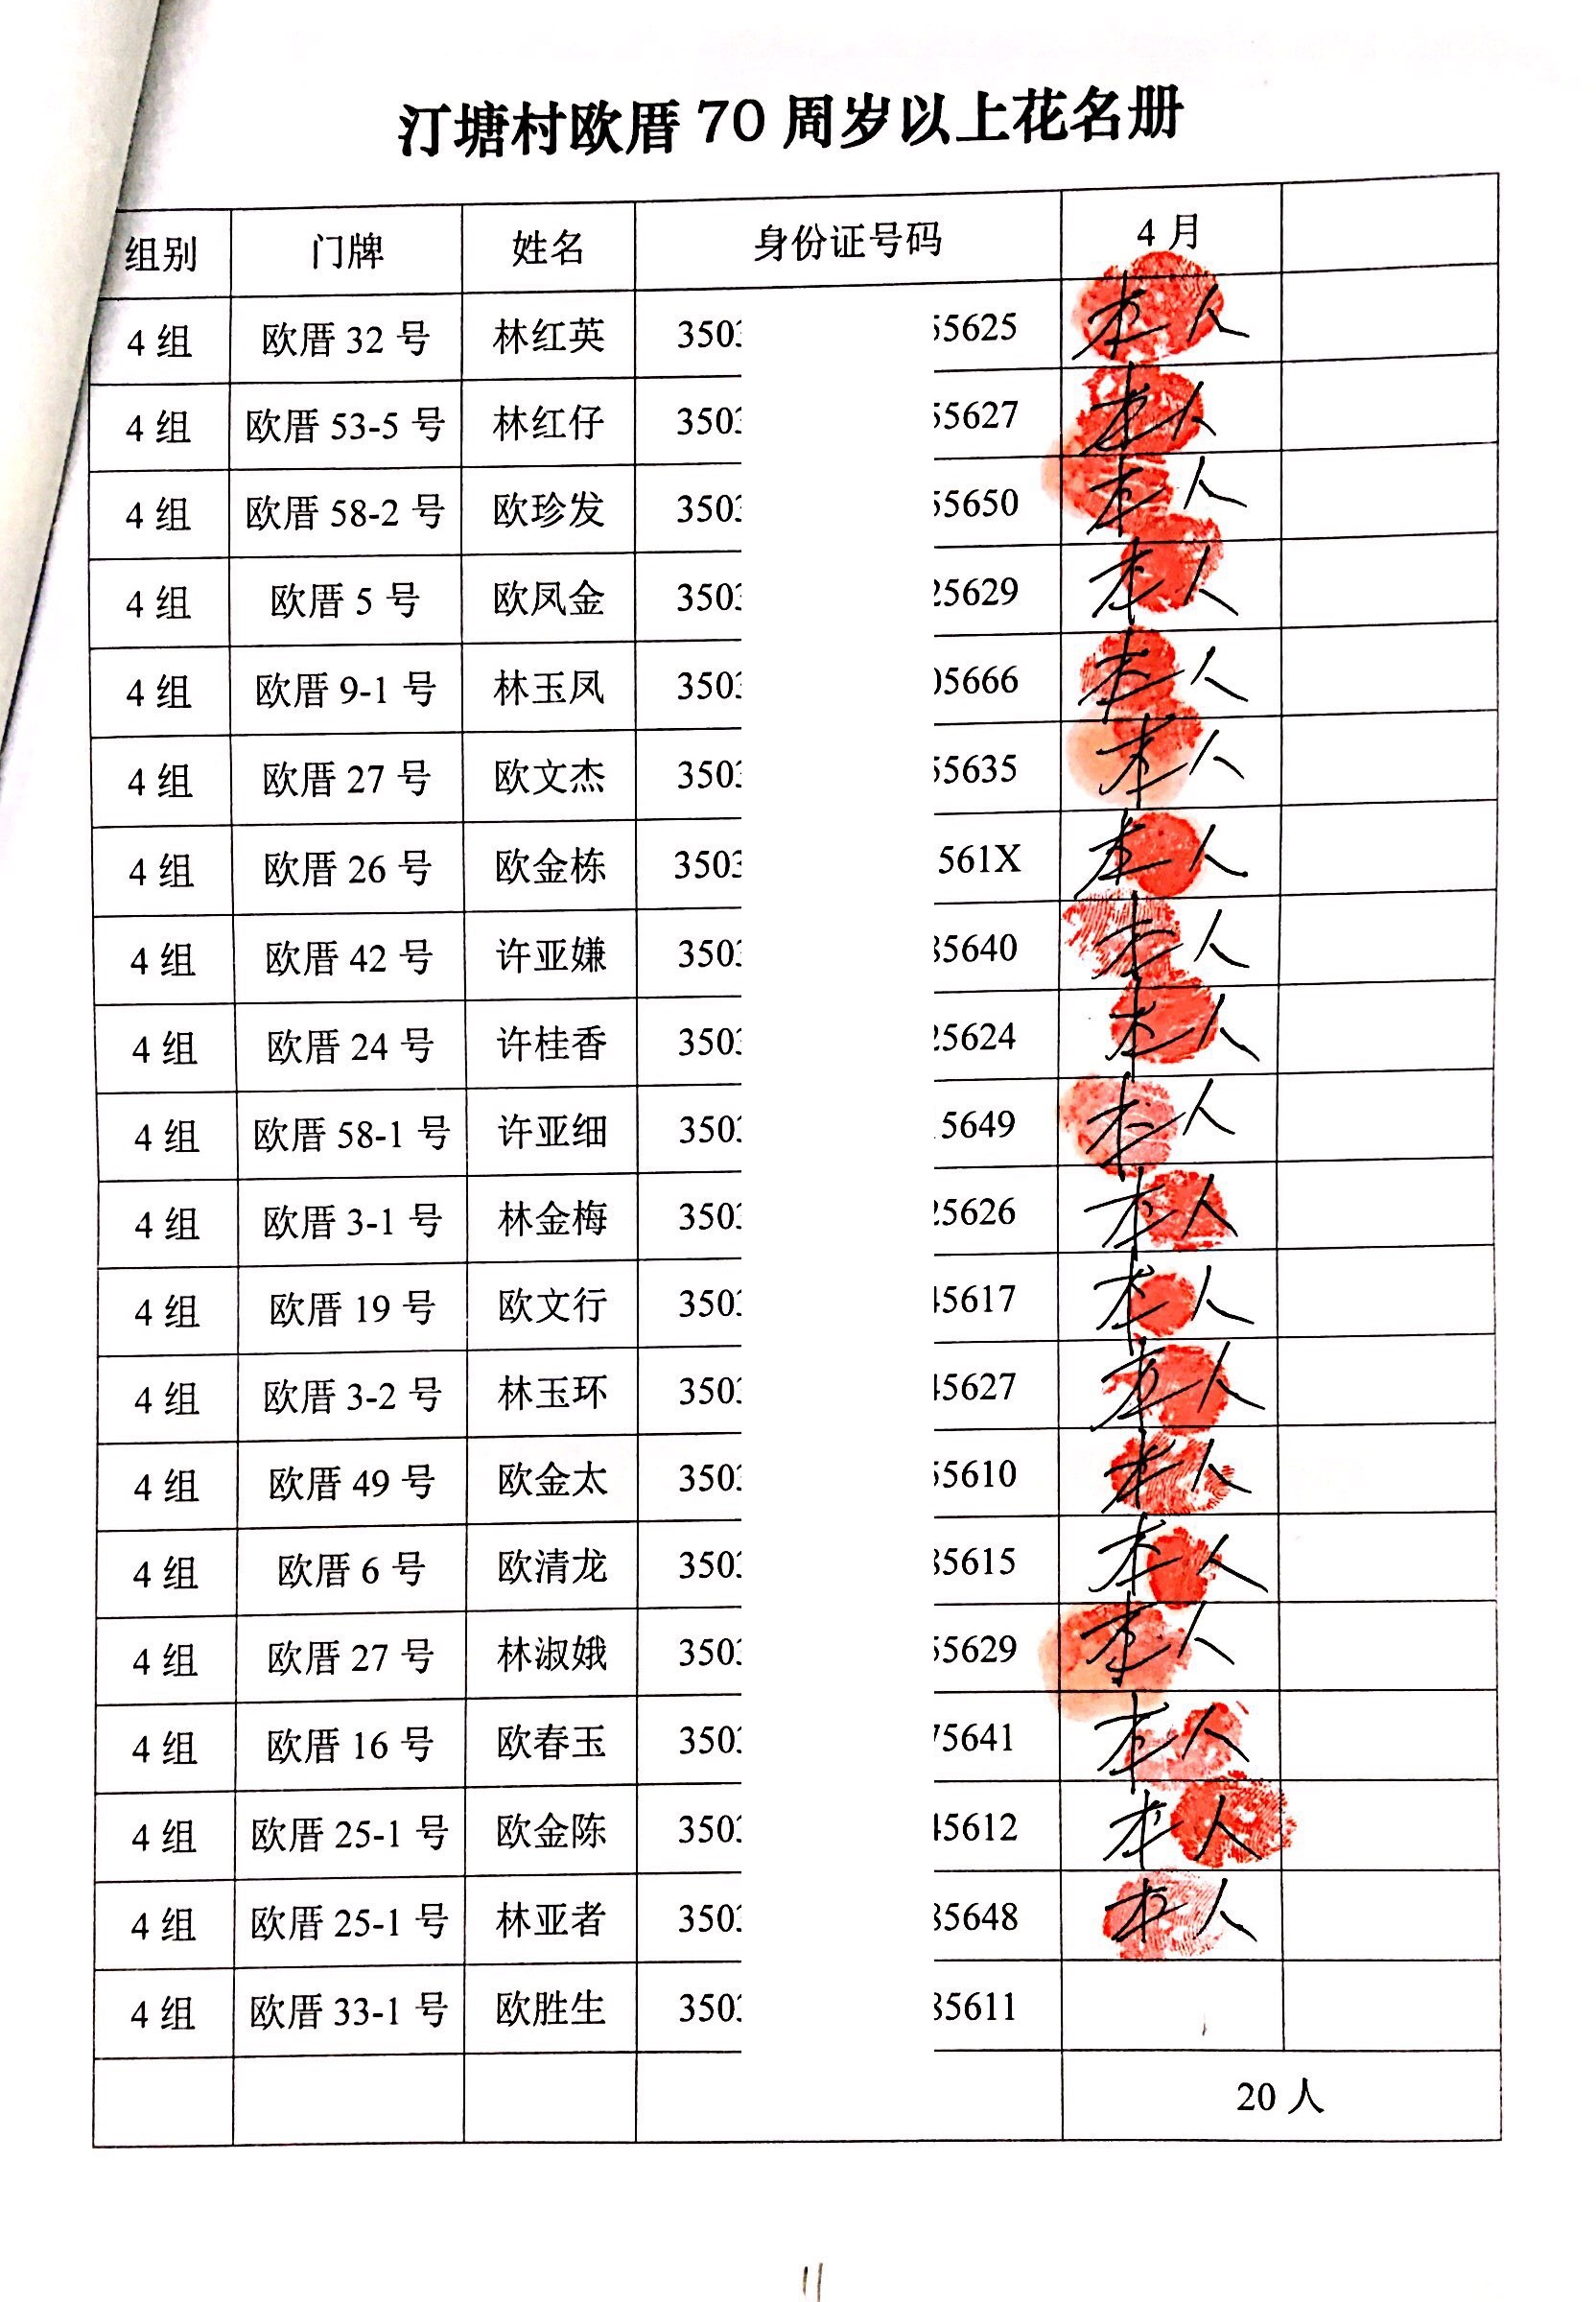 汀塘村欧厝 70 周岁以上花名册
组别 门牌 姓名 身份证号码 4 月
4 组 欧厝 32 号 林红英 350 55625 本人
4 组 欧厝 53-5 号 林红仔 350 55627 本人
4 组 欧厝 58-2 号 欧珍发 350 55650 本人
4 组 欧厝 5 号 欧凤金 350 25629 本人
4 组 欧厝 9-1 号 林玉凤 350 05666 本人
4 组 欧厝 27 号 欧文杰 350 55635 本人
4 组 欧厝 26 号 欧金栋 3503 561X 本人
4 组 欧厝 42 号 许亚嫌 350 5640 本人
4 组 欧厝 24 号 许桂香 350 25624 本人
4 组 欧厝 58-1 号 许亚细 350 5649 本人
4 组 欧厝 3-1 号 林金梅 350 25626 本人
4 组 欧厝 19 号 欧文行 350 45617 本人
4 组 欧厝 3-2 号 林玉环 350 45627 本人
4 组 欧厝 49 号 欧金太 350 55610 本人
4 组 欧厝 6 号 欧清龙 350 5615 本人
4 组 欧厝 27 号 林淑娥 350 55629 本人
4 组 欧厝 16 号 欧春玉 350 75641 本人
4 组 欧厝 25-1 号 欧金陈 350 45612 本人
4 组 欧厝 25-1 号 林亚者 350 5648 本人
4 组 欧厝 33-1 号 欧胜生 350 5611
20 人
11